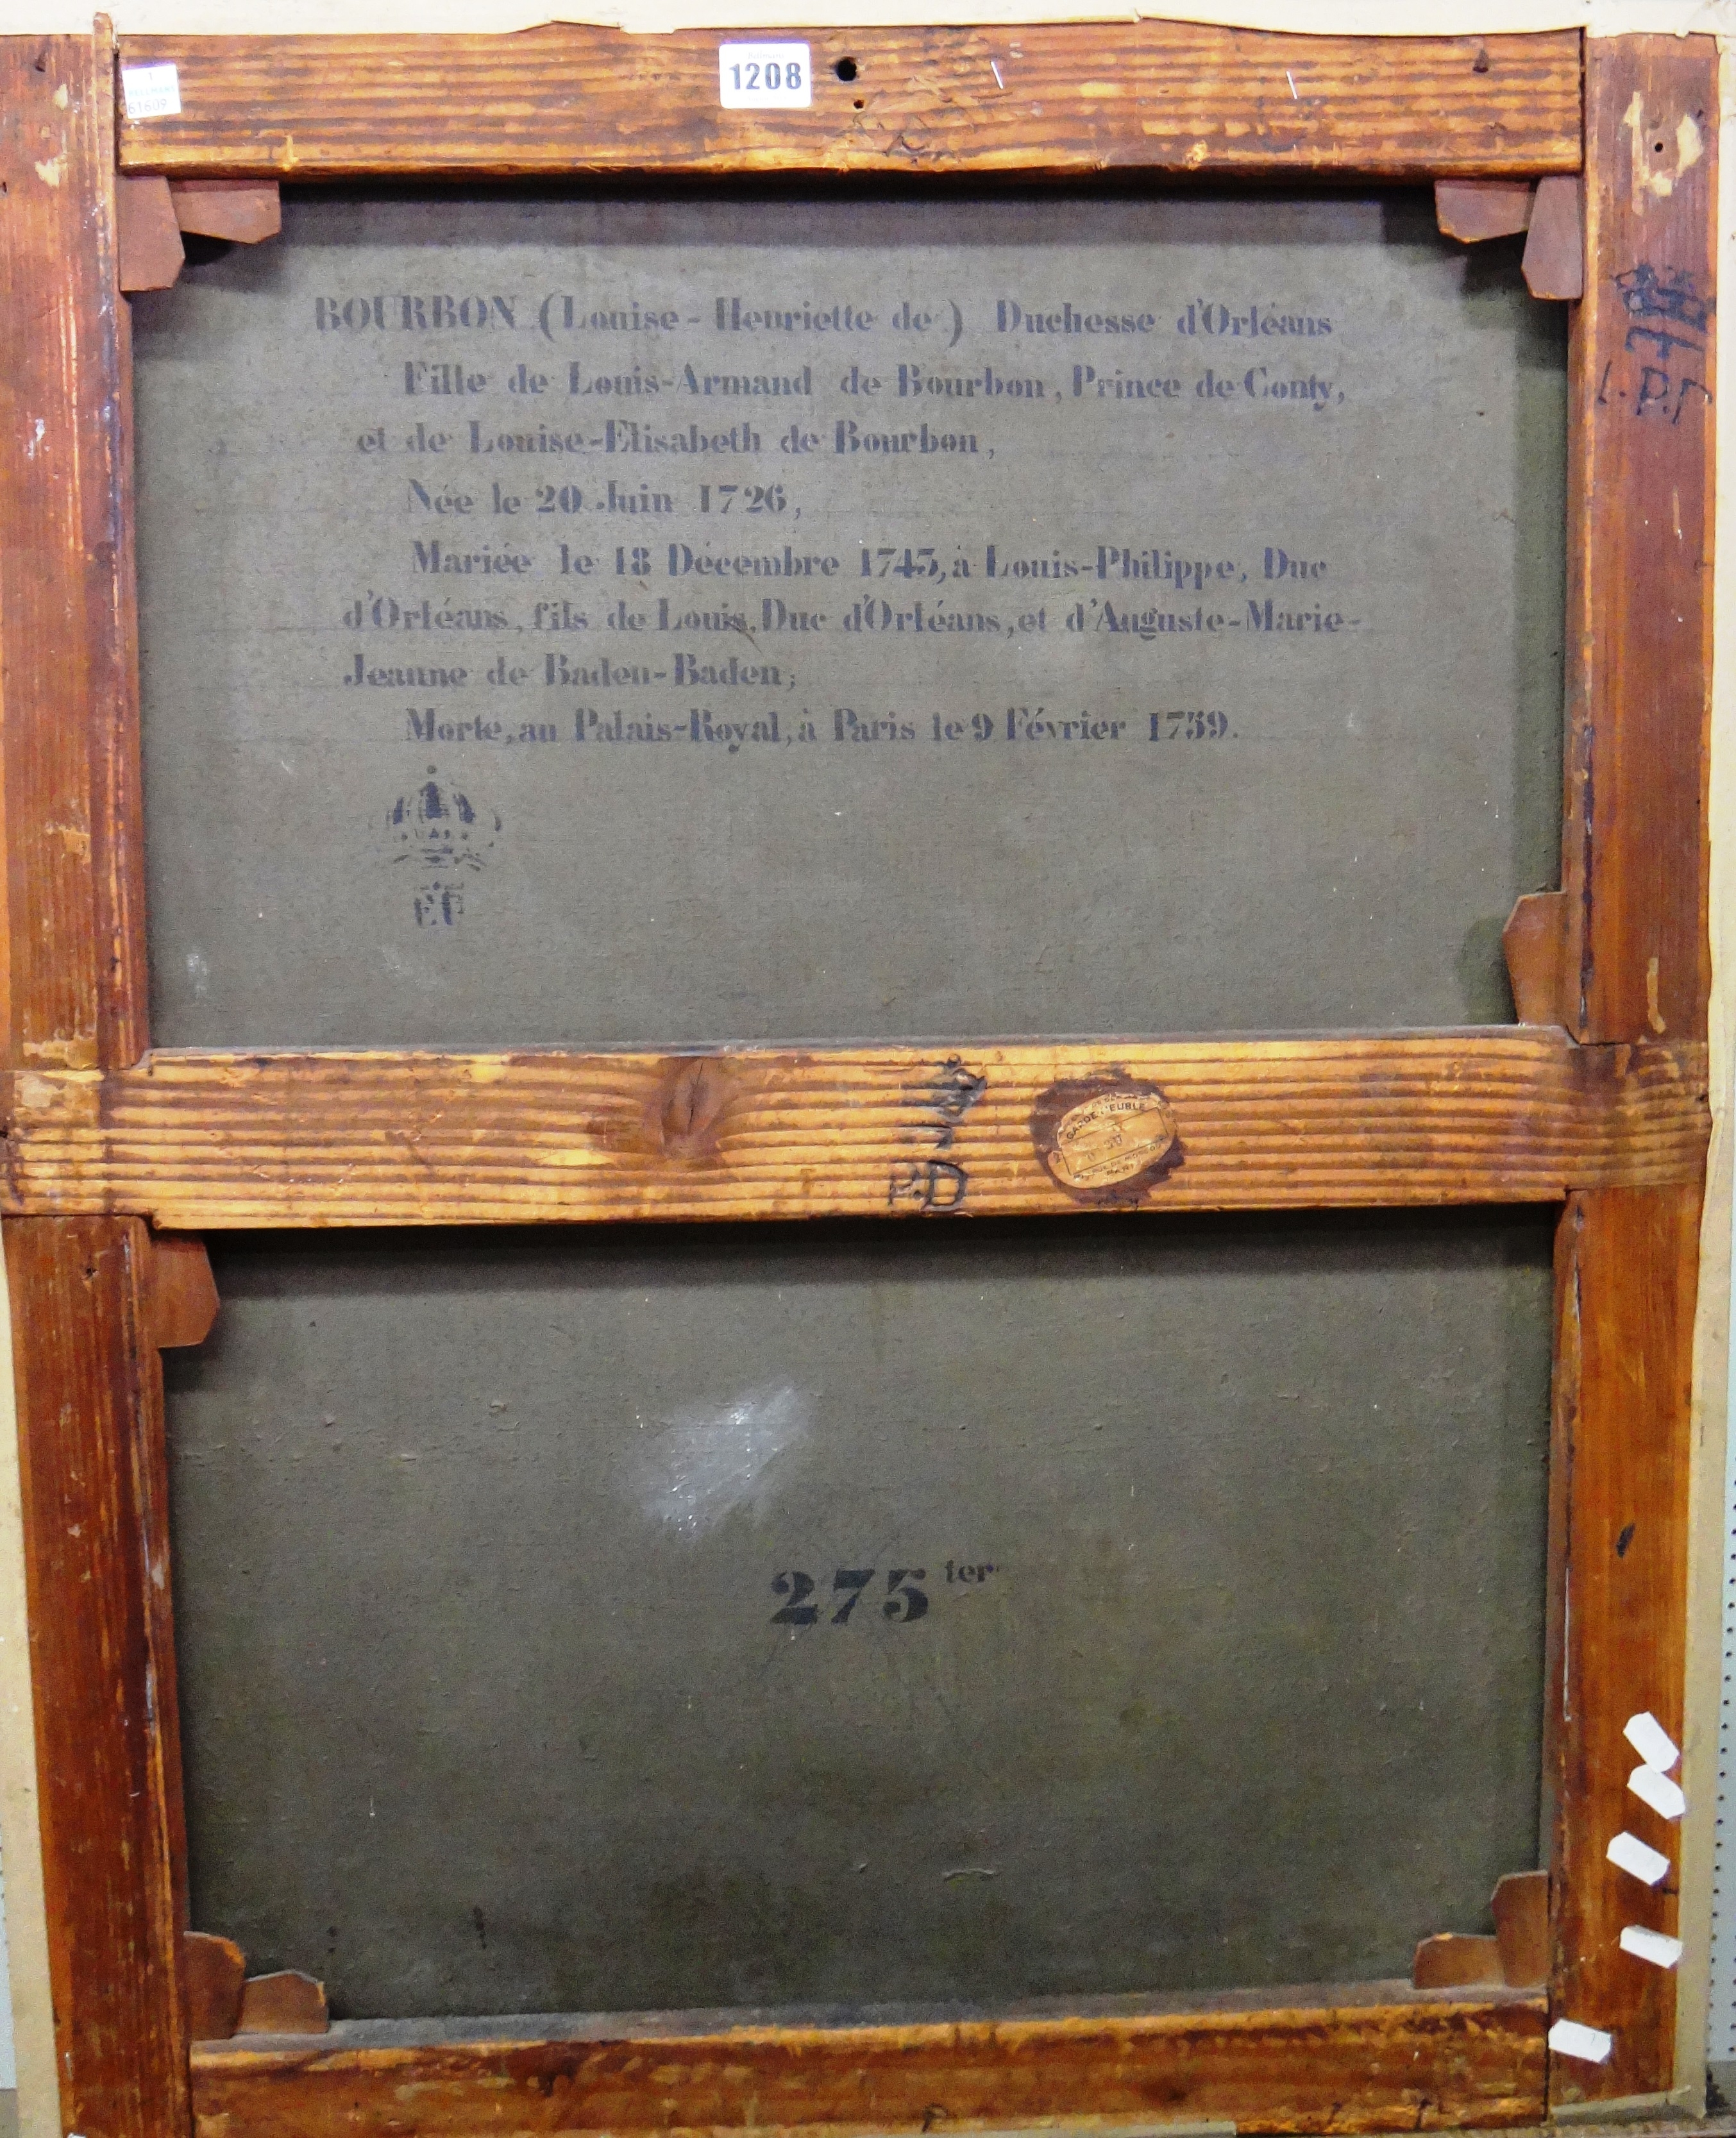 1208
61609
BOURBON (Louise-Henriette de) Duchesse d'Orléans
Fille de Louis-Armand de Bourbon, Prince de Conty,
et de Louise-Elisabeth de Bourbon,
Née le 20 Juin 1726,
Mariée le 18 Décembre 1743, à Louis-Philippe, Duc
d'Orléans, fils de Louis, Duc d'Orléans, et d'Auguste-Marie-
Jeanne de Baden-Baden;
Morte, au Palais-Royal, à Paris le 9 Février 1759.
P.D
275 ter